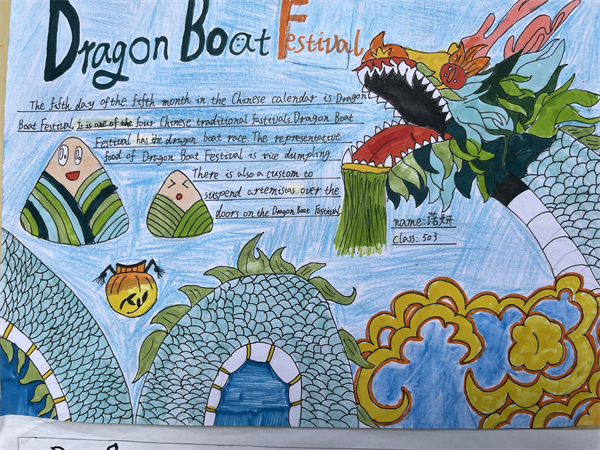 Dragon Boat Festival
The fifth day of the fifth month in the Chinese calendar is Dragon
Boat Festival. It is one of the four Chinese traditional festivals. Dragon Boat
Festival has the dragon boat race. The representative
food of Dragon Boat Festival is rice dumpling.
There is also a custom to
suspend artemisias over the
doors on the Dragon Boat Festival
name:
class: 503